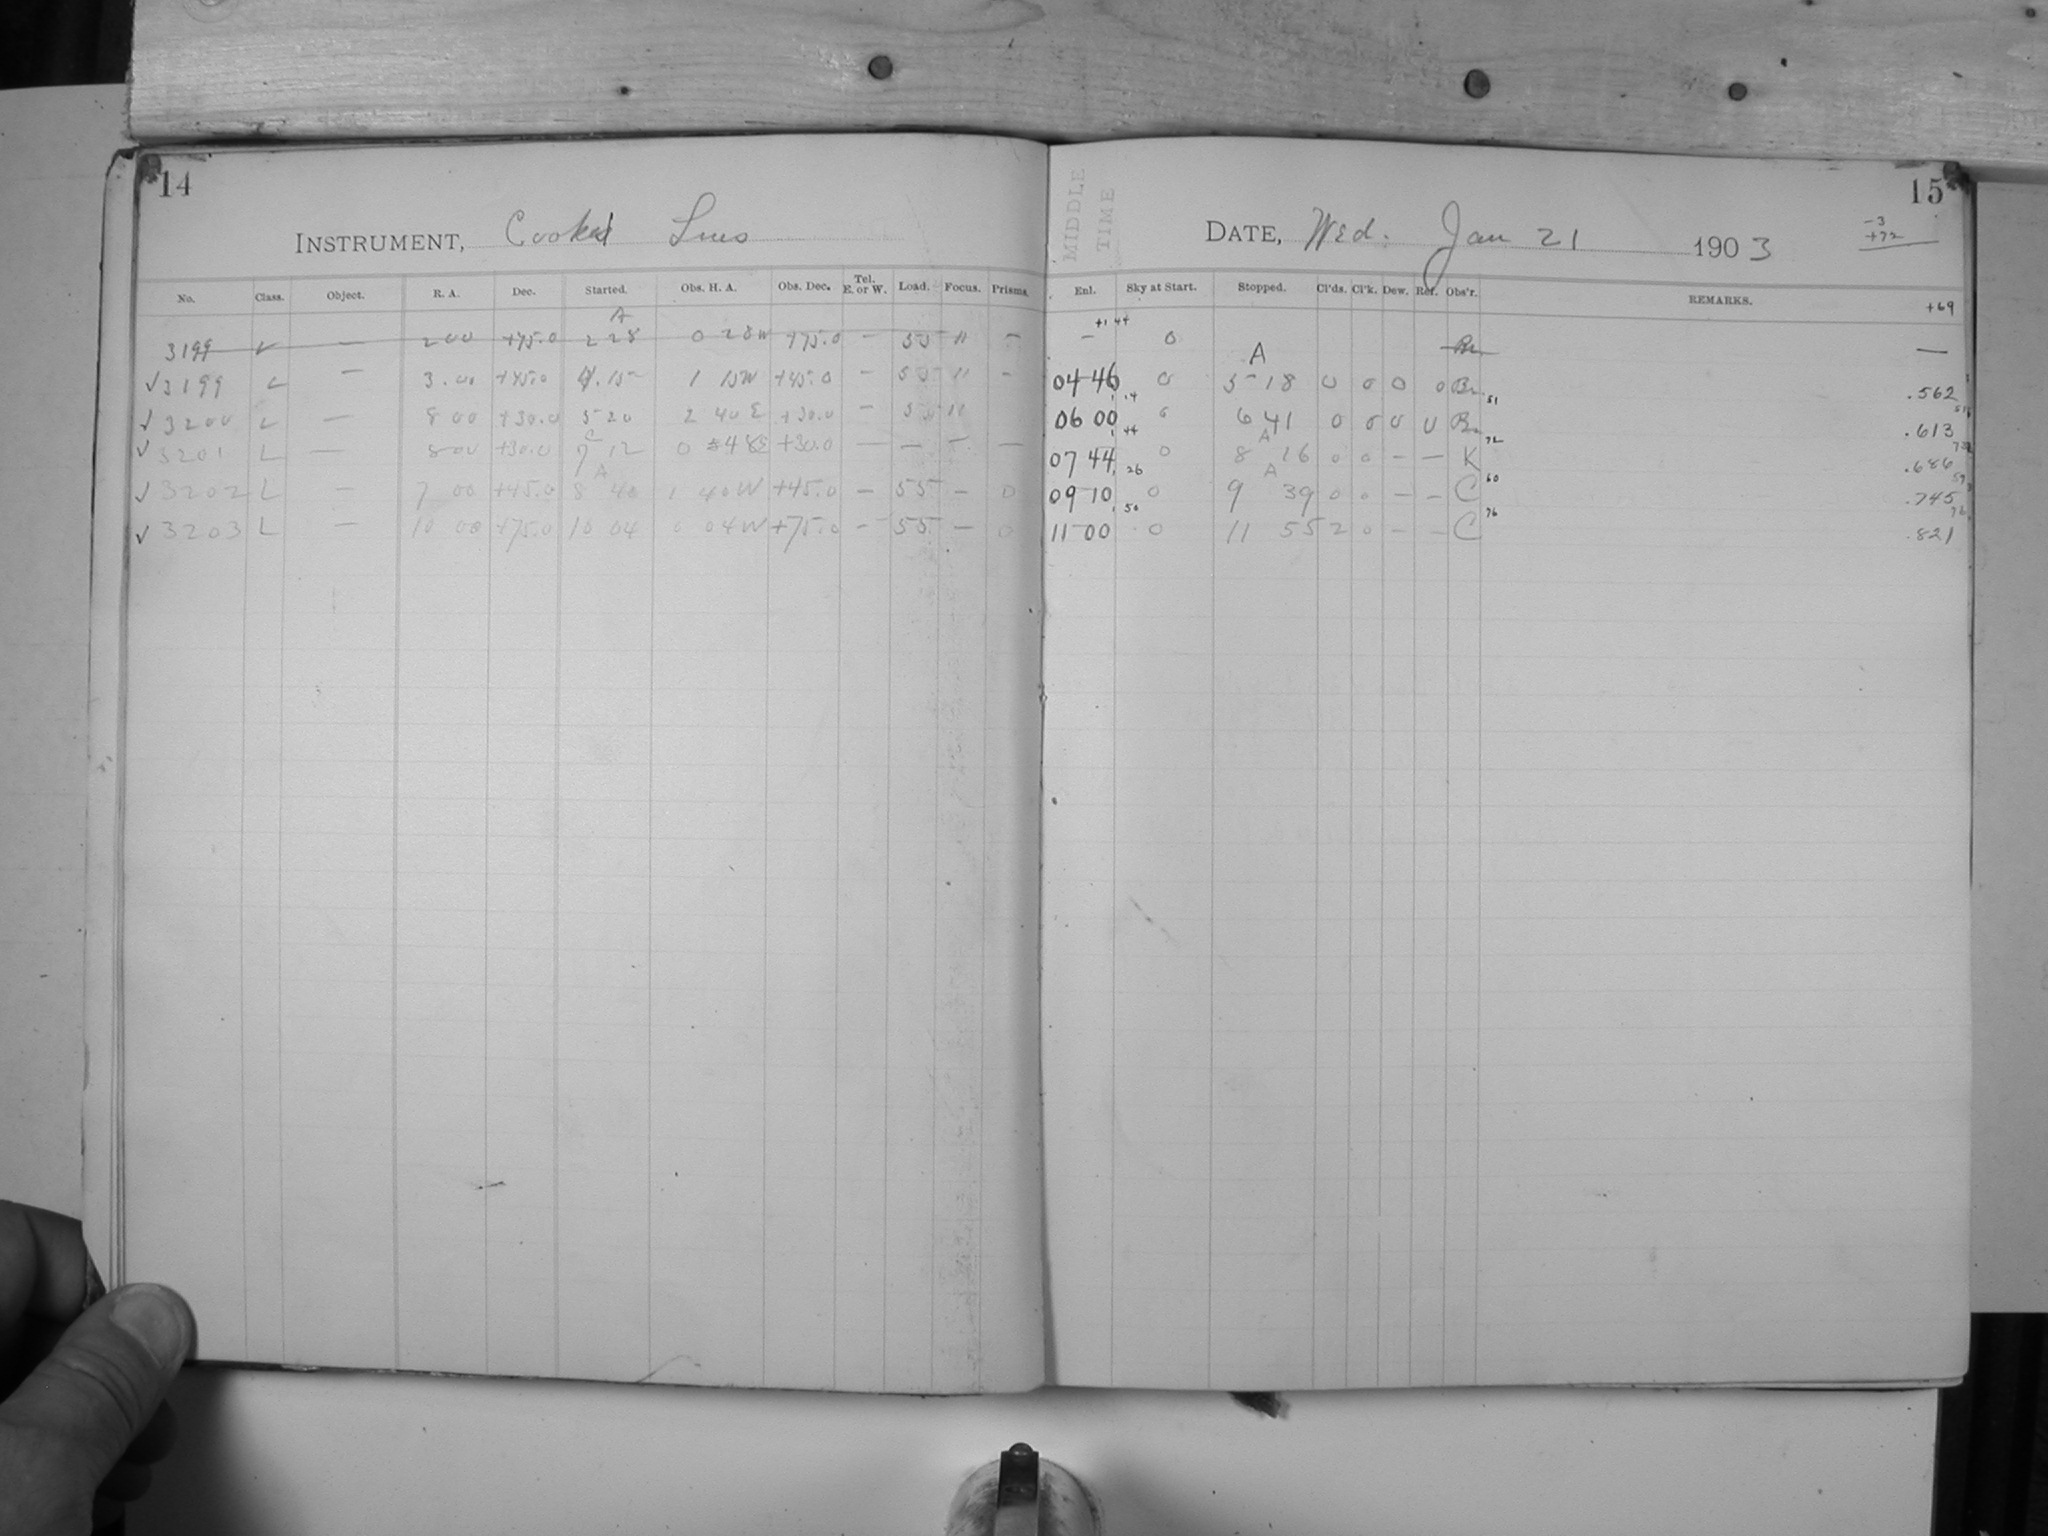 14
INSTRUMENT, Cooke Lens
No. Class. Object. R. A. Dec. Started. Obs. H. A. Obs. Dec. Tel. E. or W. Load. Focus. Prisms.
A
3199 L — 2 00 +75.0 2 28 0 28W +75.0 — 55 11 —
✓3199 L — 3.00 +45.0 4.15 1 15W +45.0 — 55 11 —
✓3200 L — 8 00 +30.0 5 20 2 40E +30.0 — 55 11
C
✓3201 L — 8 00 +30.0 7 12 0 48E +30.0 — — — —
A
✓3202 L — 7 00 +45.0 8 40 1 40W +45.0 — 55 — 0
✓3203 L — 10 00 +75.0 10 04 0 04W +75.0 — 55 — 0
MIDDLE
TIME
15
DATE, Wed. Jan 21 1903
-3
+72
+69
Enl. Sky at Start. Stopped. Cl'ds. Cl'k. Dew. Ref. Obs'r. REMARKS.
+1 44
— 0 Br. —
A
04 46 0 5 18 0 0 0 0 Br. .562
1 14 51
06 00 0 6 41 0 0 0 0 Br. .613
1 44 A 72
07 44 0 8 16 0 0 — — K .686
1 26 A 60
09 10 0 9 39 0 0 — — C .745
1 50 76
11 00 0 11 55 2 0 — — C .821